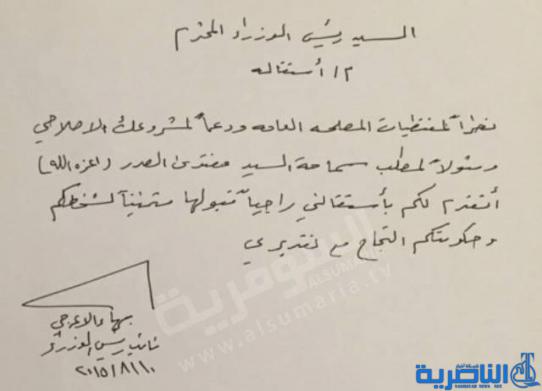 السيد رئيس الوزراء المحترم
م/ أستقاله
نظراً لمقتضيات المصلحه العامه ودعماً لمشروعك الاصلاحي
ونزولاً لمطلب سماحة السيد مقتدى الصدر (اعزه الله)
أتقدم لكم بأستقالتي راجياً قبولها متمنياً لشخصكم
وحكومتكم النجاح مع تقديري
بهاء الاعرجي
نائب رئيس الوزراء
٢٠١٥/٨/١٠
السومرية
ALSUMARIA.TV
www.alsumaria.tv
شبكة اخبار
الناصرية